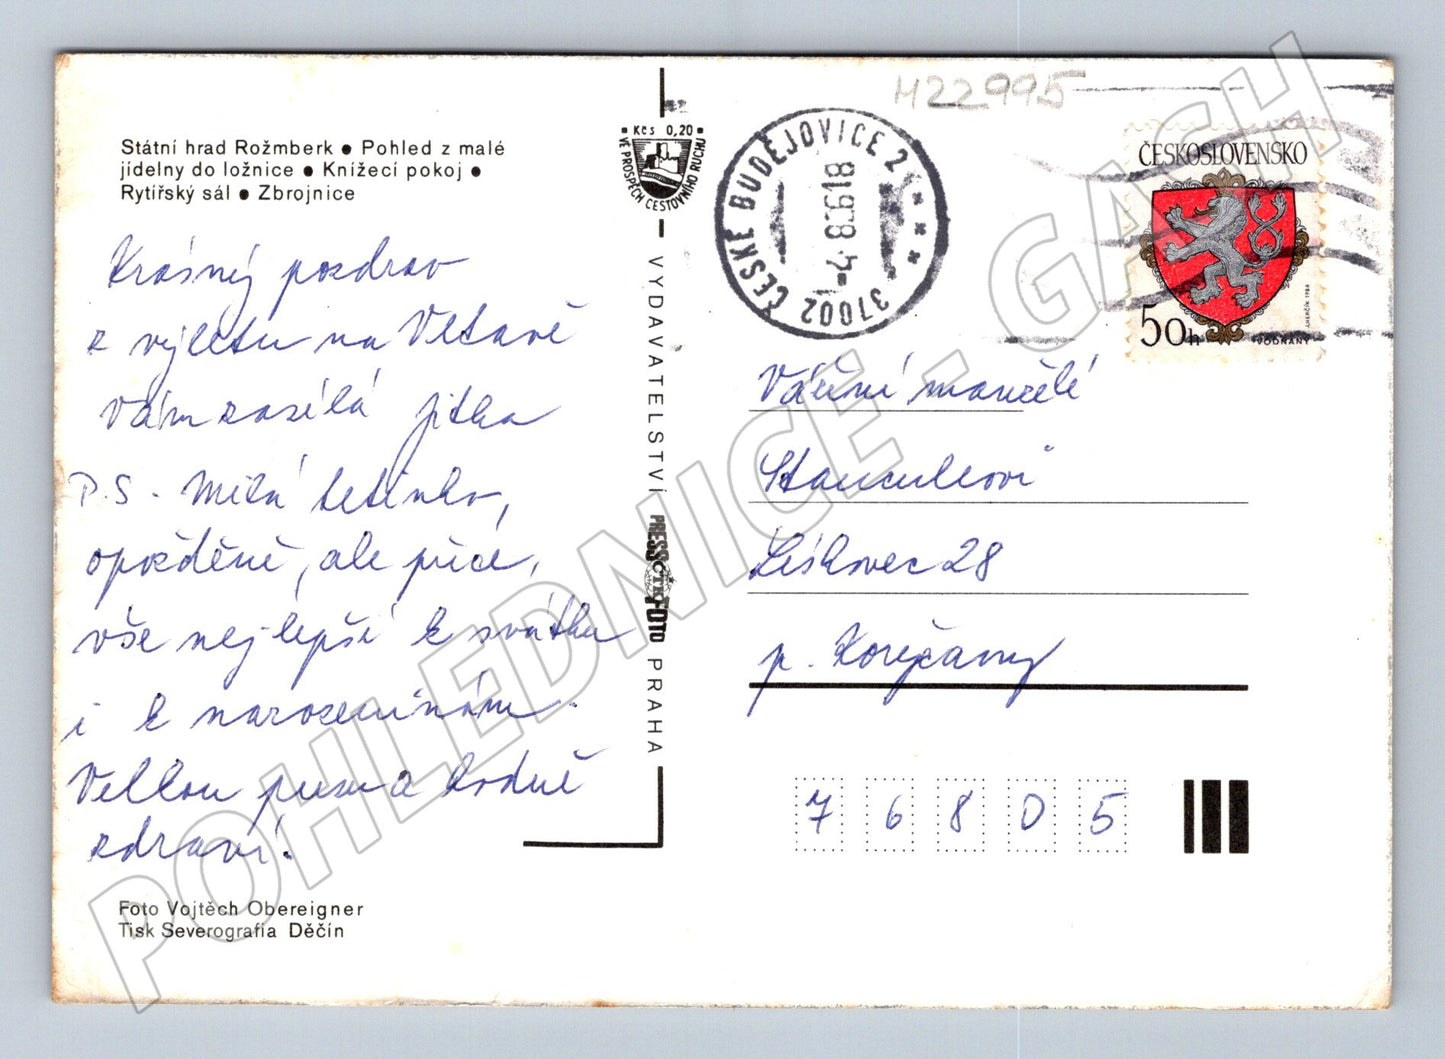 M22995
Státní hrad Rožmberk ● Pohled z malé
jídelny do ložnice ● Knížecí pokoj ●
Rytířský sál ● Zbrojnice
Kčs 0,20
VE PROSPĚCH CESTOVNÍHO RUCHU
37002 ČESKÉ BUDĚJOVICE 2
ČESKOSLOVENSKO
50h
VODŇANY
Krásný pozdrav
z výletu na Vltavě
Vám zasílá Jitka
P.S. Milá tetinko,
opožděně, ale přece,
vše nejlepší k svátku
i k narozeninám.
Velkou pusu a hodně
zdraví.
VYDAVATELSTVÍ PRESSFOTO PRAHA
ČTK
Vážení manželé
Stanculeovi
Lískovec 28
p. Koryčany
76805
Foto Vojtěch Obereigner
Tisk Severografia Děčín
POHLEDNICE - GASH